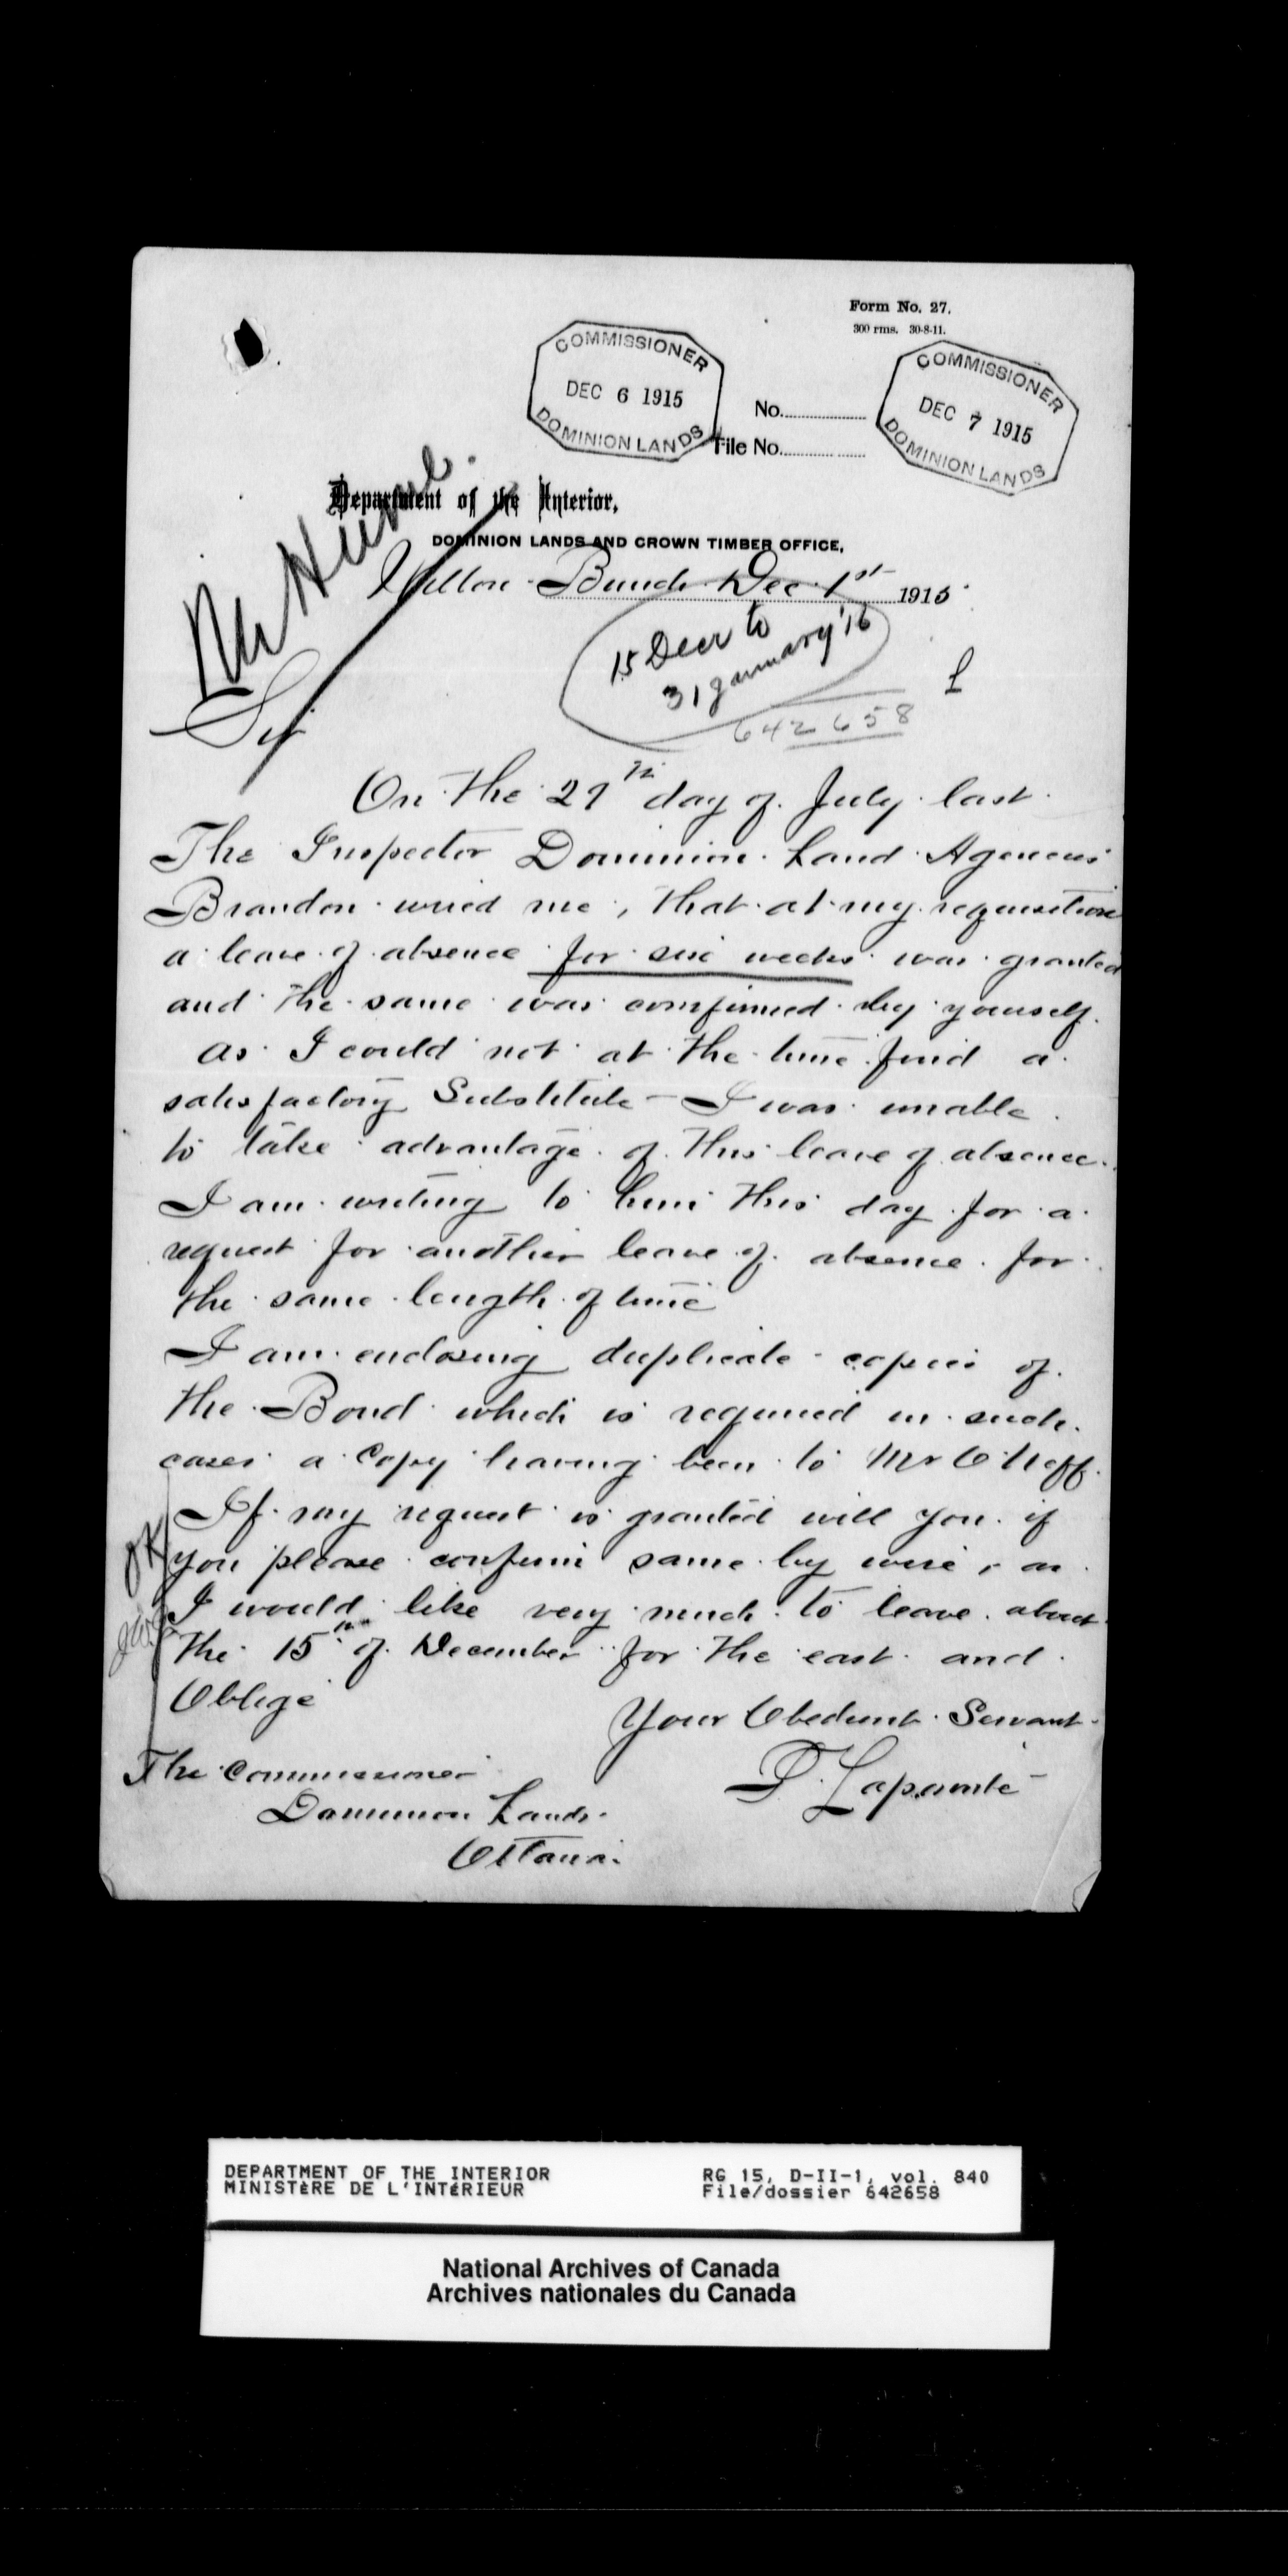 Form No. 27.
300 rms. 30-8-11.
COMMISSIONER
DEC 6 1915
DOMINION LANDS
COMMISSIONER
DEC 7 1915
DOMINION LANDS
No.
File No.
Department of the Interior,
DOMINION LANDS AND CROWN TIMBER OFFICE,
Willow Bunch Dec 1st 1915
Mr Hume
15 Decr to
31 January '16
642658
Sir
On the 27th day of July last
The Inspector Dominion Land Agencies
Brandon wired me, that at my requisition
a leave of absence for six weeks was granted
and the same was confirmed by yourself.
As I could not at the time find a
satisfactory Substitute – I was unable
to take advantage of this leave of absence.
I am writing to him this day for a
request for another leave of absence for
the same length of time
I am enclosing duplicate copies of
the Bond which is required in such
cases a Copy having been to Mr Cuttle
If my request is granted will you if
you please confirm same by wire, as
I would like very much to leave about
the 15th of December for the east and
Oblige
OK
Your Obedient Servant
P. Lapointe
The Commissioner
Dominion Lands
Ottawa.
DEPARTMENT OF THE INTERIOR
MINISTÈRE DE L'INTÉRIEUR
RG 15, D-II-1, vol. 840
File/dossier 642658
National Archives of Canada
Archives nationales du Canada